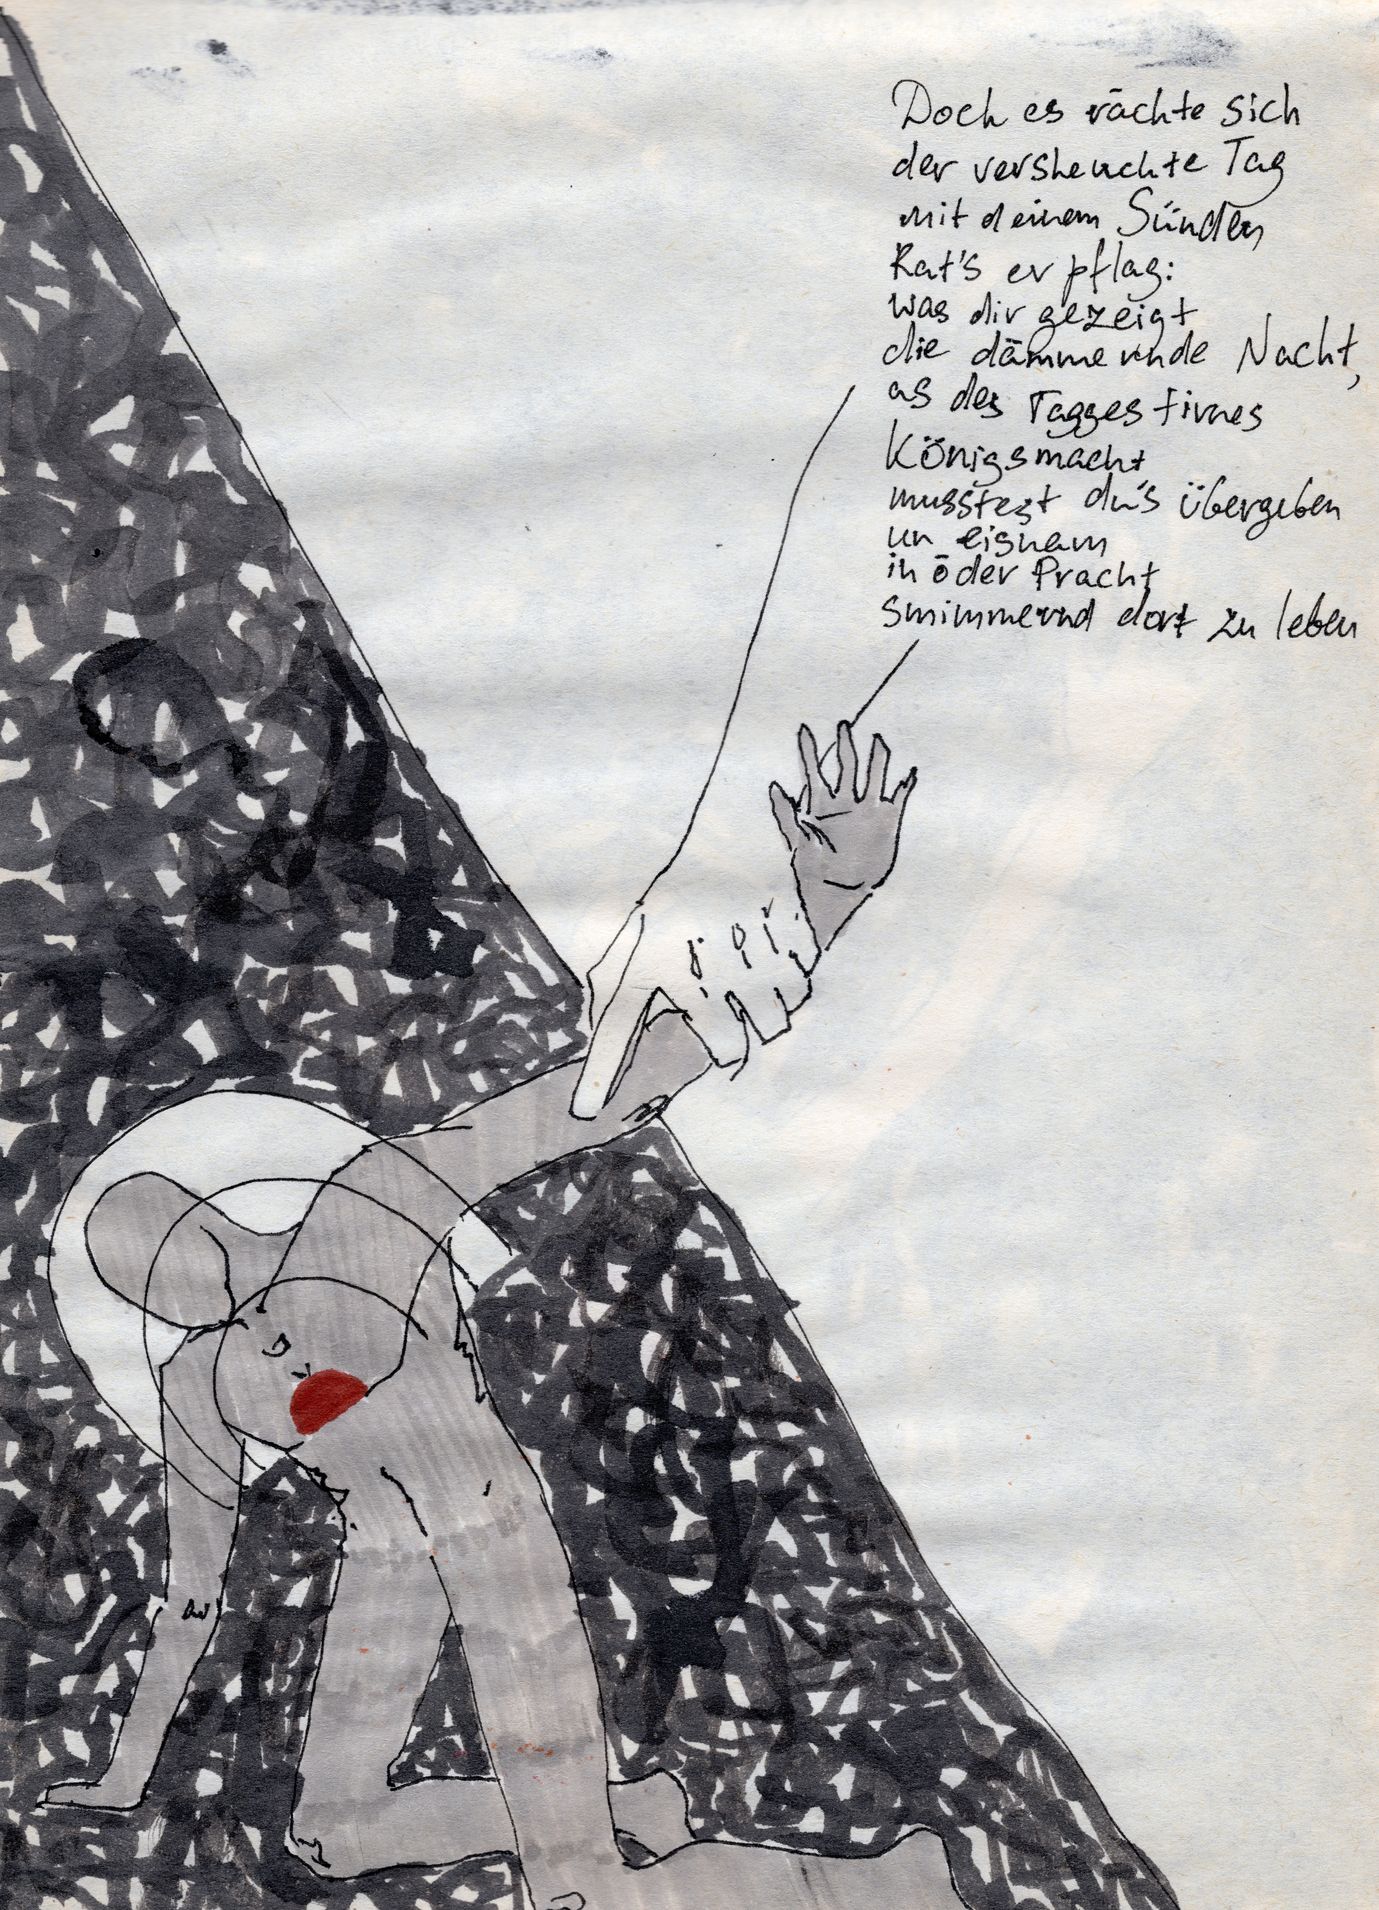 Doch es rächte sich
der versheuchte Tag
mit deinem Sünden
Rat's er pflag:
was dir gezeigt
die dämmernde Nacht,
as des Tagges firnes
Königsmacht
musstest du's übergeben
un eignam
in öder Pracht
smimmernd dort zu leben